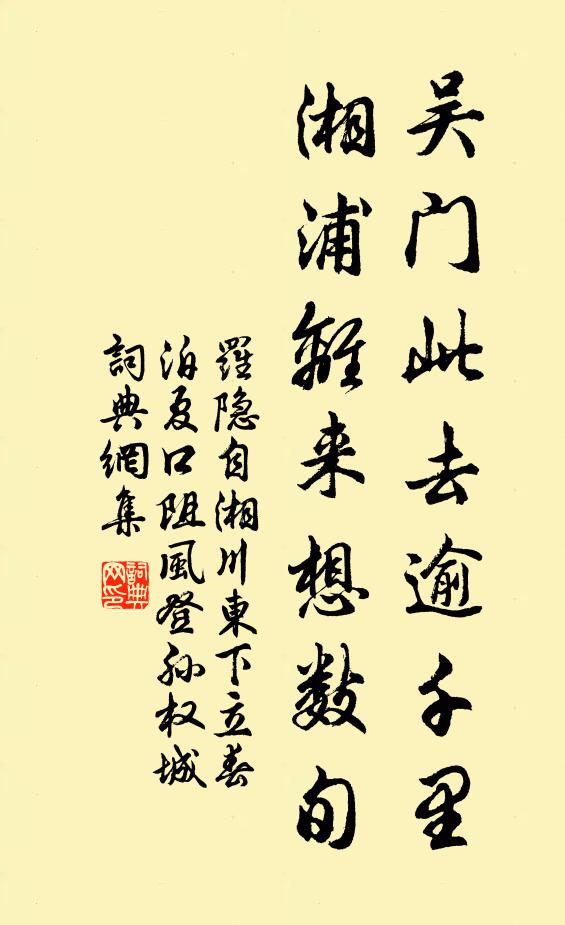 吴门此去逾千里
湘浦離来想数旬
羅隐自湘川東下立春
泊夏口阻風登孙权城
詞典網集
詞典
网印